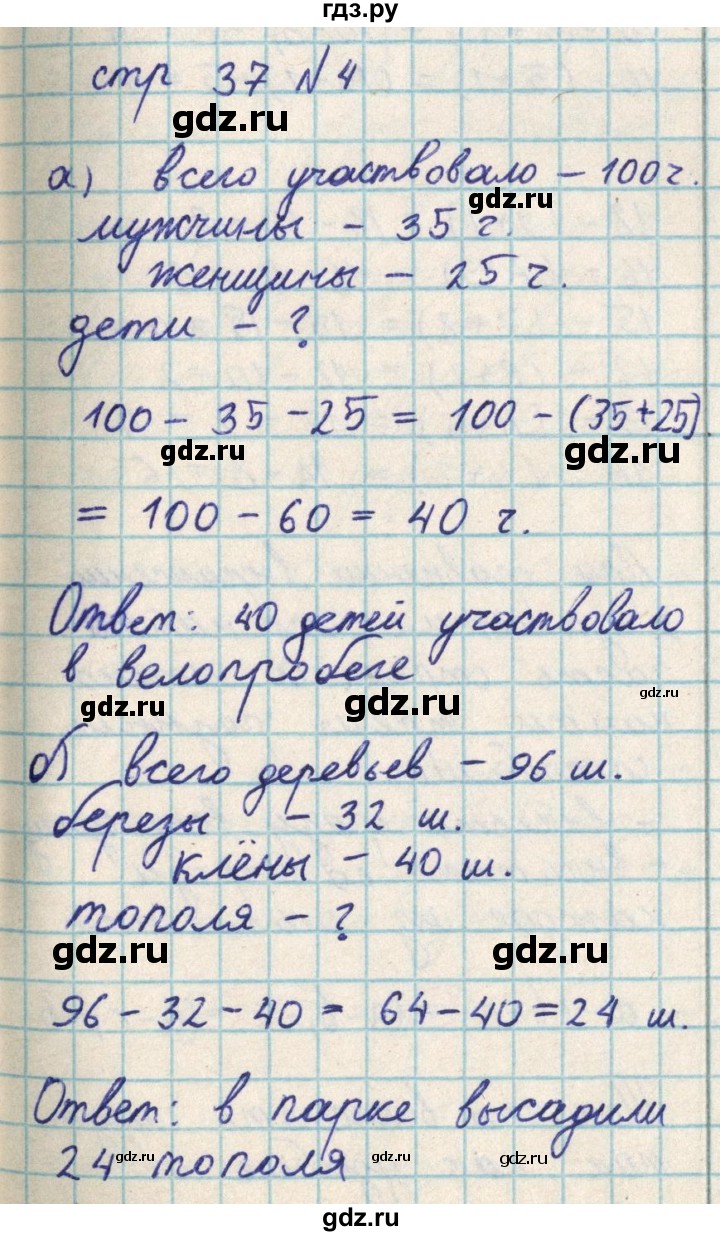 гдз.ру
стр 37 №4
gdz.ru
а) всего участвовало – 100 ч.
gdz.ru
мужчины – 35 ч.
женщины – 25 ч.
дети – ?
100 – 35 – 25 = 100 – (35+25)
gdz.ru gdz.ru
= 100 – 60 = 40 ч.
Ответ: 40 детей участвовало
в велопробеге
gdz.ru gdz.ru gdz.ru
б) всего деревьев – 96 ш.
березы – 32 ш.
клёны – 40 ш.
тополя – ?
gdz.ru gdz.ru
96 – 32 – 40 = 64 – 40 = 24 ш.
Ответ: в парке высадили
24 тополя
gdz.ru gdz.ru gdz.ru
gdz.ru
gdz.ru